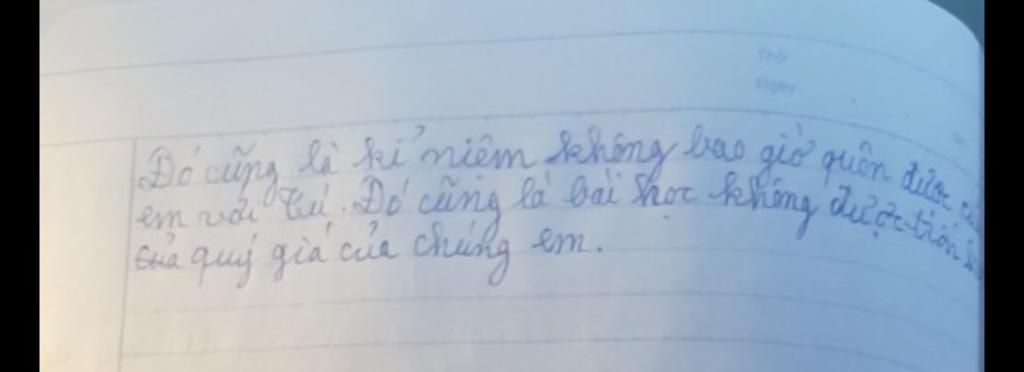 Thứ
Ngày
Đó cũng là kỉ niệm không bao giờ quên được của
em với Tú. Đó cũng là bài học không được trốn
của quý giá của chúng em.